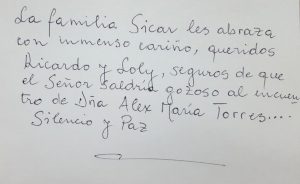 La familia Sicar les abraza
con inmenso cariño, queridos
Ricardo y Loly, seguros de que
el Señor saldría gozoso al encuen
tro de Dña Alex María Torres....
Silencio y Paz